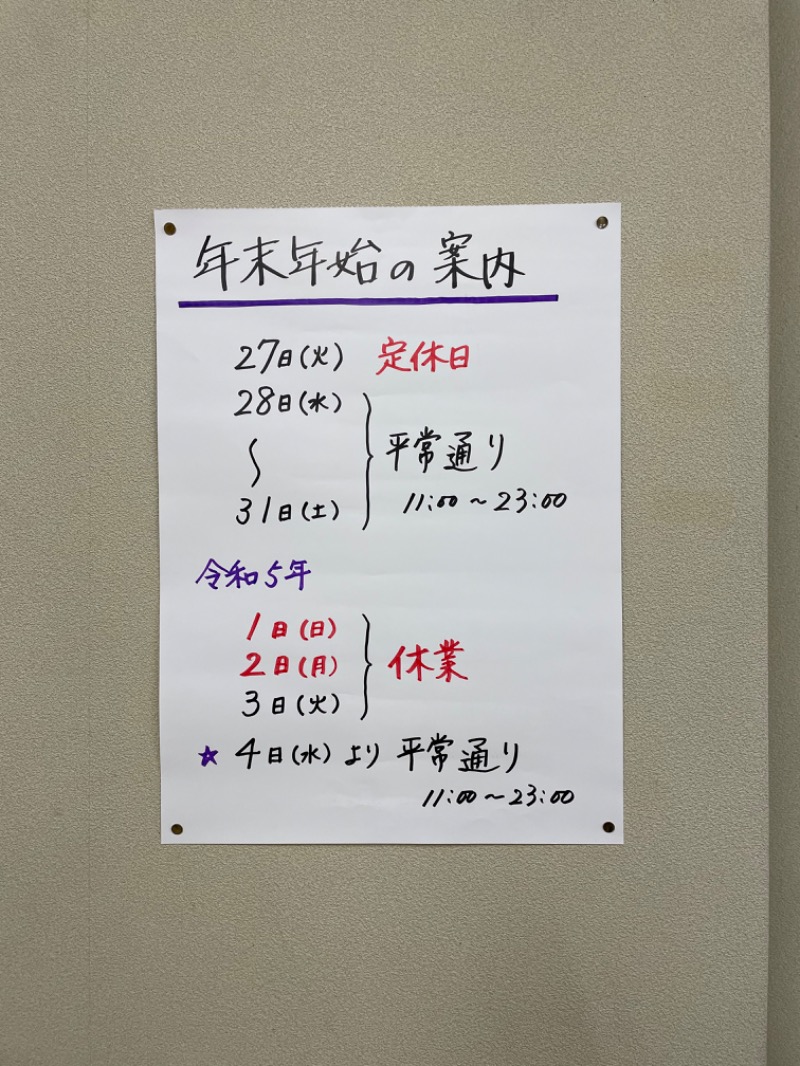 年末年始の案内
27日(火) 定休日
28日(水)
〜
31日(土)
平常通り
11:00〜23:00
令和5年
1日(日)
2日(月)
3日(火)
休業
★ 4日(水)より 平常通り
11:00〜23:00